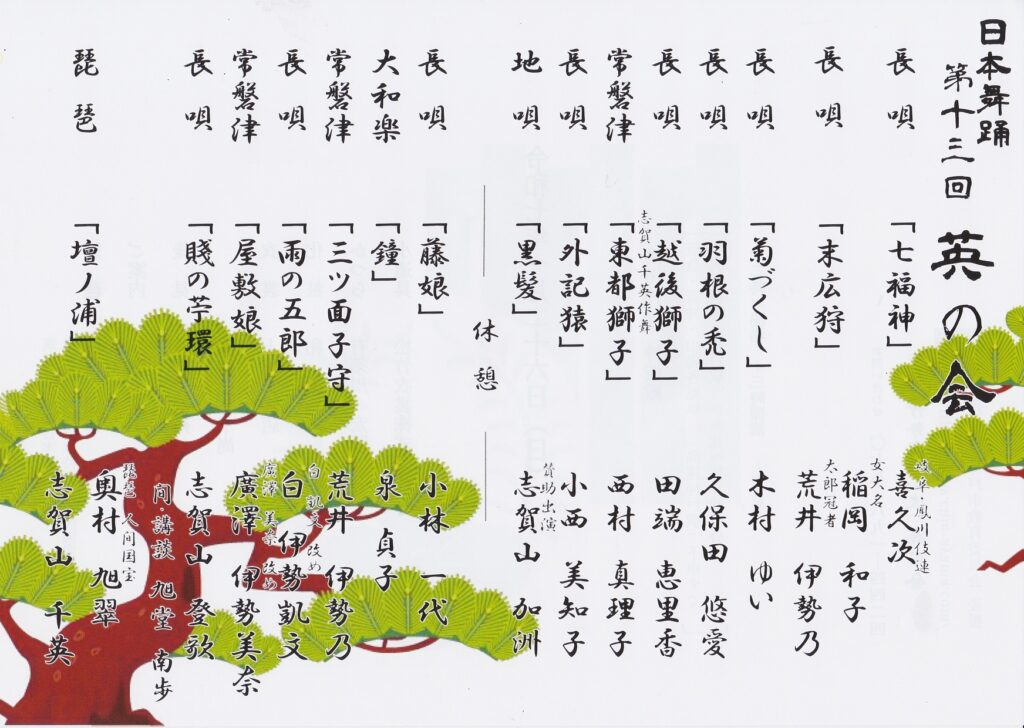 日本舞踊
第十三回 英の会
長唄 「七福神」 岐阜鳳川伎連 喜久次
長唄 「末広狩」 女大名 稲岡 和子
太郎冠者 荒井 伊勢乃
長唄 「菊づくし」 木村 ゆい
長唄 「羽根の禿」 久保田 悠愛
長唄 「越後獅子」 田端 恵里香
志賀山千英作舞
常磐津 「東都獅子」 西村 真理子
長唄 「外記猿」 小西 美知子
賛助出演
地唄 「黒髪」 志賀山 加洲
休憩
長唄 「藤娘」 小林 一代
大和楽 「鐘」 泉 貞子
常磐津 「三ツ面子守」 荒井 伊勢乃
白 凱文 改め
長唄 「雨の五郎」 白 伊勢凱文
廣澤 美奈 改め
常磐津 「屋敷娘」 廣澤 伊勢美奈
長唄 「賤の苧環」 志賀山 登歌
間・講談 旭堂 南歩
琵琶 人間国宝
奥村 旭翠
琵琶 「壇ノ浦」 志賀山 千英